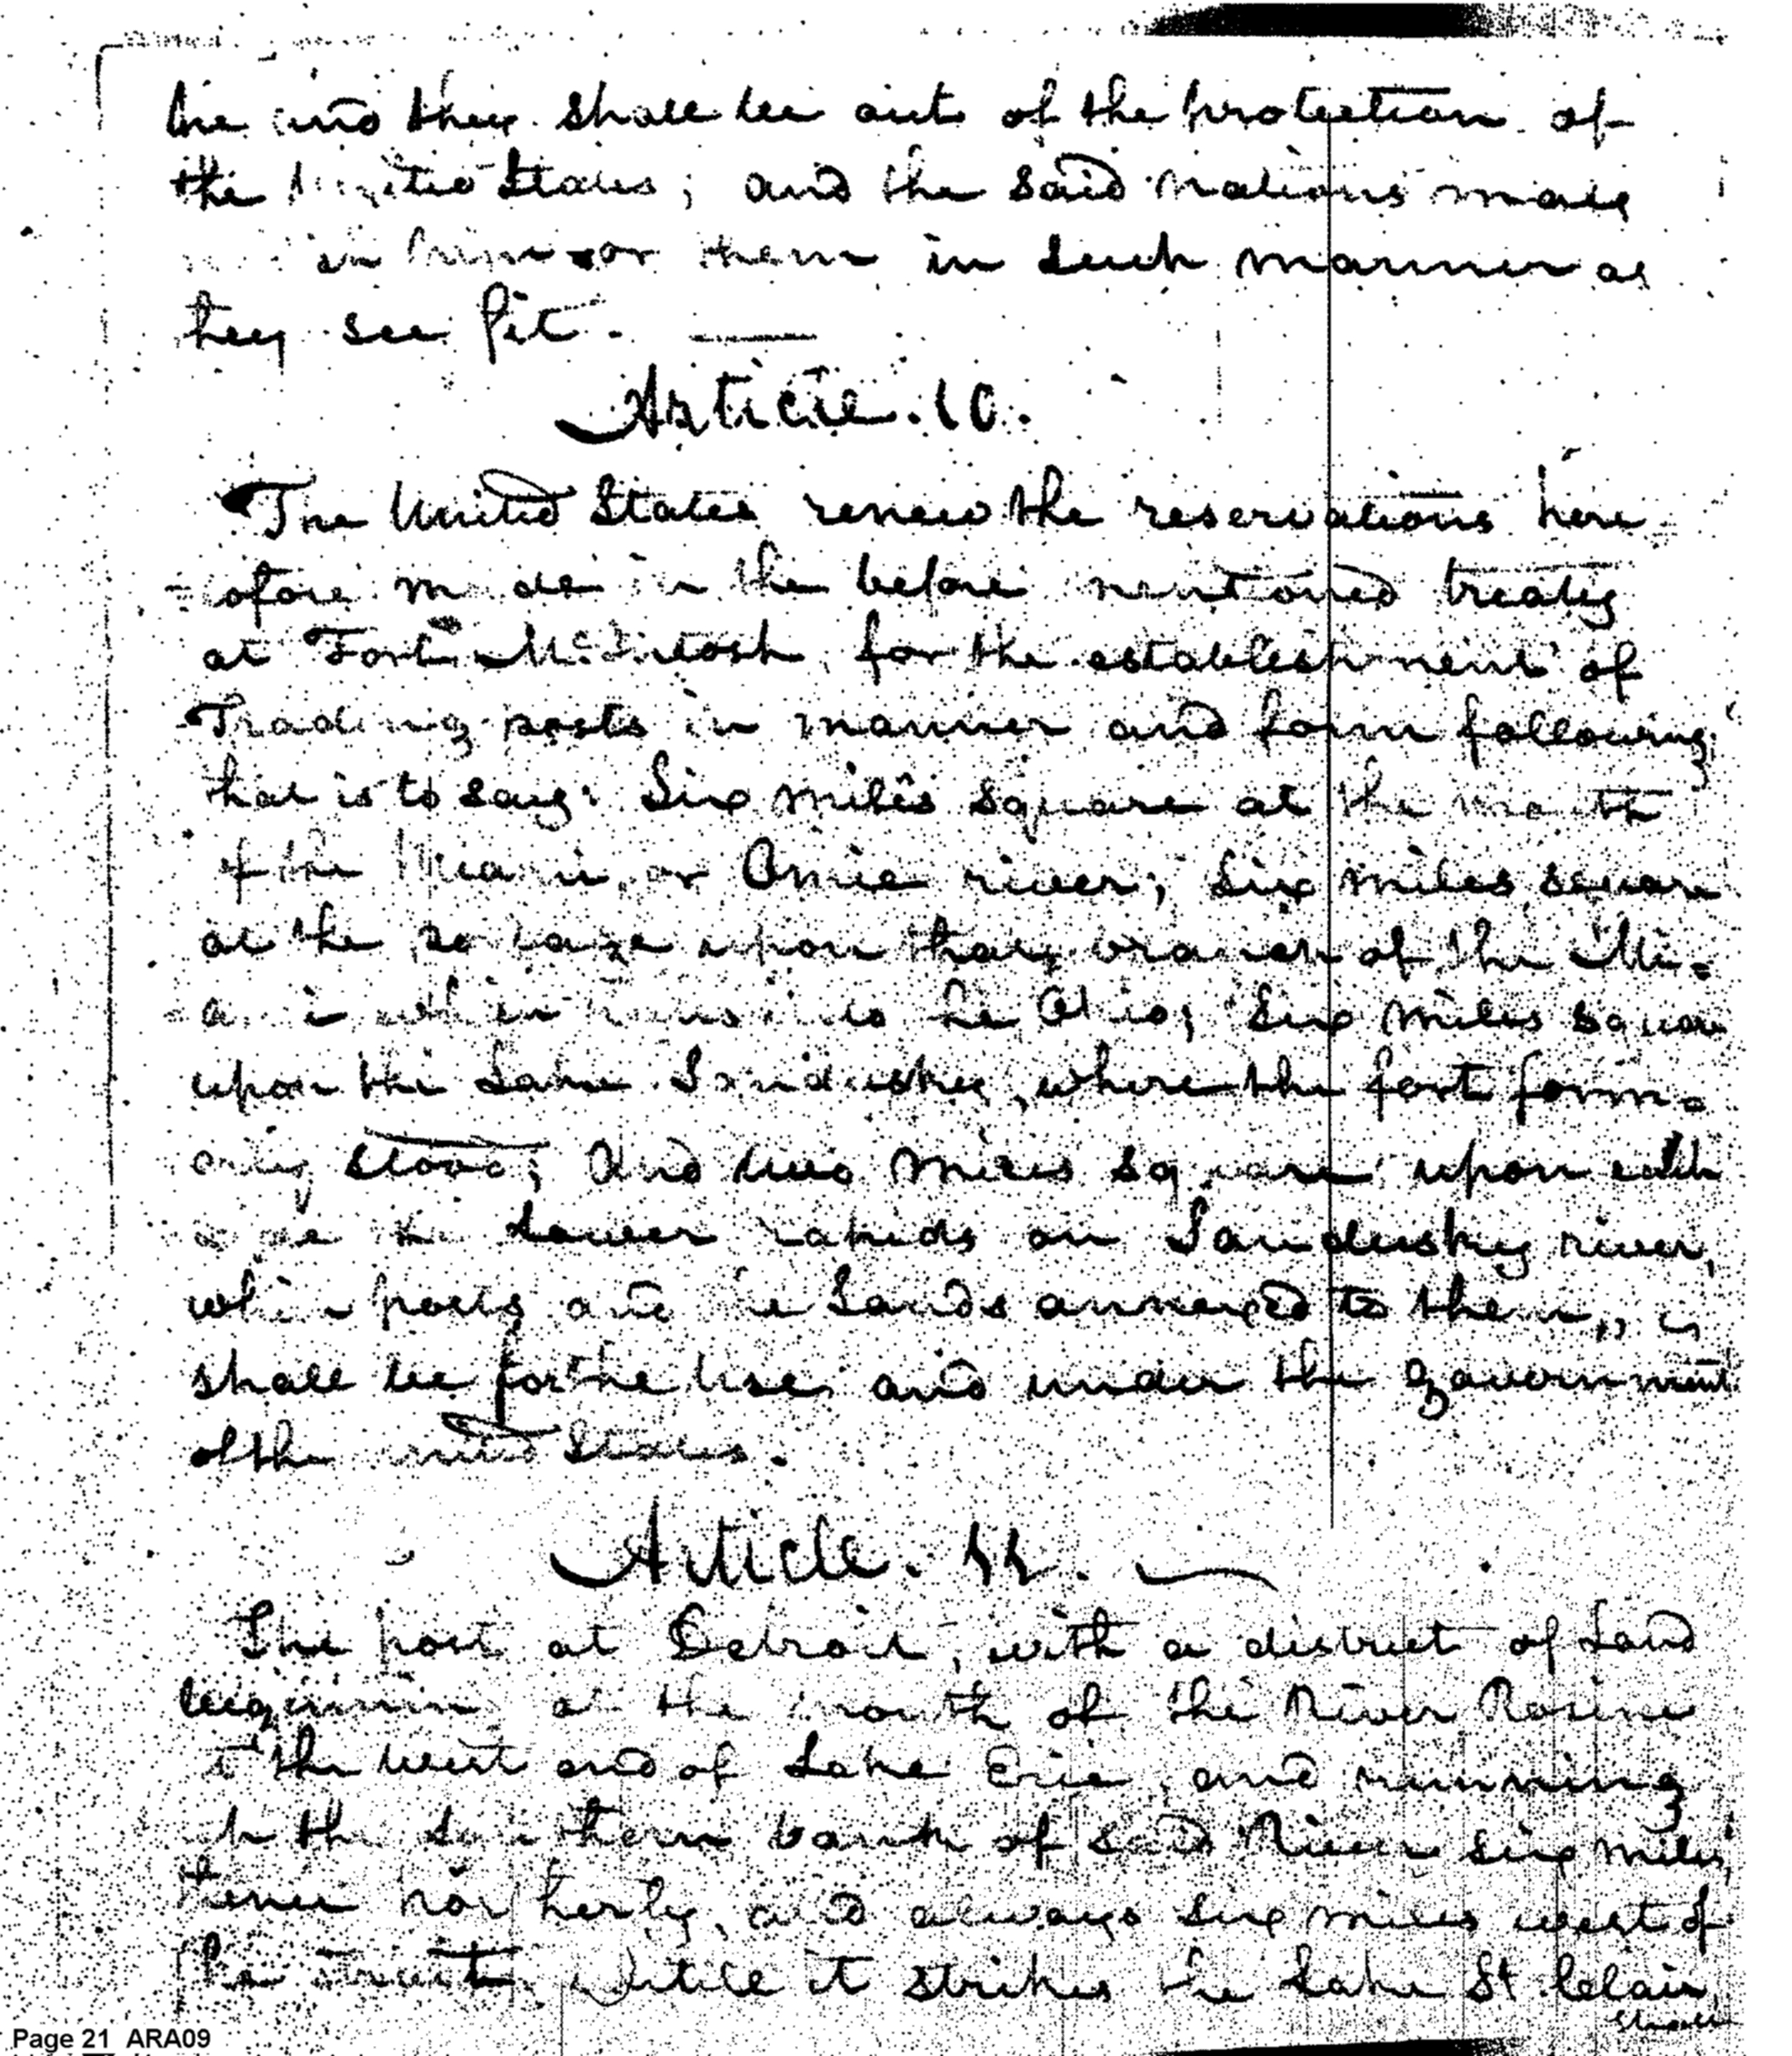 he and they shall be out of the protection of
the United States; and the said nations may
him or them in such manner as
they see fit.
Article. 10.
The United States renew the reservations here
tofore made in the before mentioned treaty
at Fort McIntosh, for the establishment of
Trading posts in manner and form following;
that is to say: Six miles square at the mouth
of the Miami or Omie river; Six miles square
at the upon that branch of the Mi=
=ami which runs into the Ohio; Six miles square
upon the Lake Sandusky, where the fort form=
erly stood; and two miles square upon each
side the Lower rapids on Sandusky river,
which posts and the Lands annexed to them,
shall be for the Use and under the government
of the United States.
Article. 11.
The post at Detroit, with a district of Land
beginning at the mouth of the River Rosine
at the west end of Lake Erie, and running
up the southern bank of said River six miles;
thence northerly, and always six miles west of
the strait, untill it strikes the Lake St. Clair
Page 21 ARA09